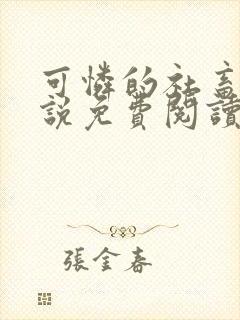 可憐的社畜
說免費閱讀
張金春